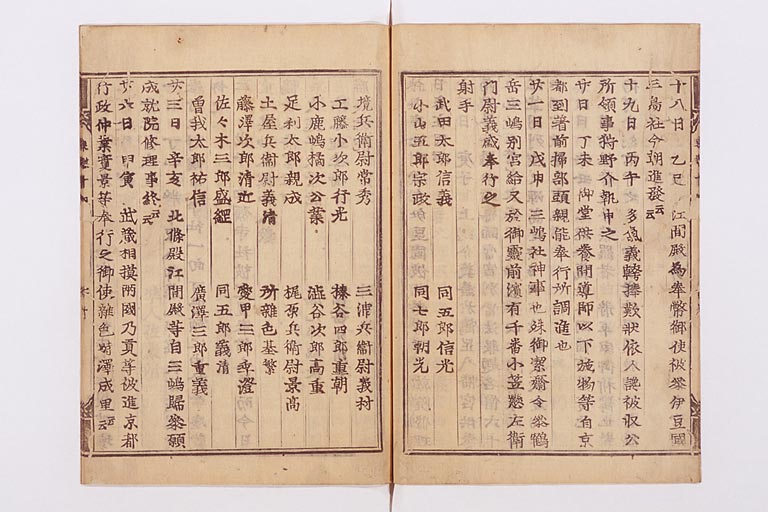 十八日 乙巳 江間殿為奉幣御使被參伊豆國
三島社今朝進發云云
十九日 丙午 多好義轉擣歎狀依人讒被収公
所領事狩野介執申之
廿日 丁未 御堂供養間導師以下施物等自京
都到著前掃部頭親能奉行所調進也
廿一日 戊申 三嶋社神事也殊御潔齋令參鶴
岳三嶋別宮給又於御靈前濱有千番小笠懸左衛
門尉義盛奉行之
射手
武田太郎信義 同五郎信光
小山五郎宗政 同七郎朝光
境兵衛尉常秀 三浦兵衛尉義村
工藤小次郎行光 榛谷四郎重朝
小鹿嶋橘次公業 澁谷次郎高重
足利太郎親成 梶原兵衛尉景高
土屋兵衛尉義清 所雜色基繁
藤澤次郎清近 愛甲三郎季澄
佐々木三郎盛綱 同五郎義清
曽我太郎祐信 廣澤三郎實義
廿三日 辛亥 北條殿江間殿等自三嶋歸參願
成就院修理事終云云
廿六日 甲寅 武蔵相摸兩國乃貢等被進京都
行政仲業實景等奉行之御使雜色時澤成里云云